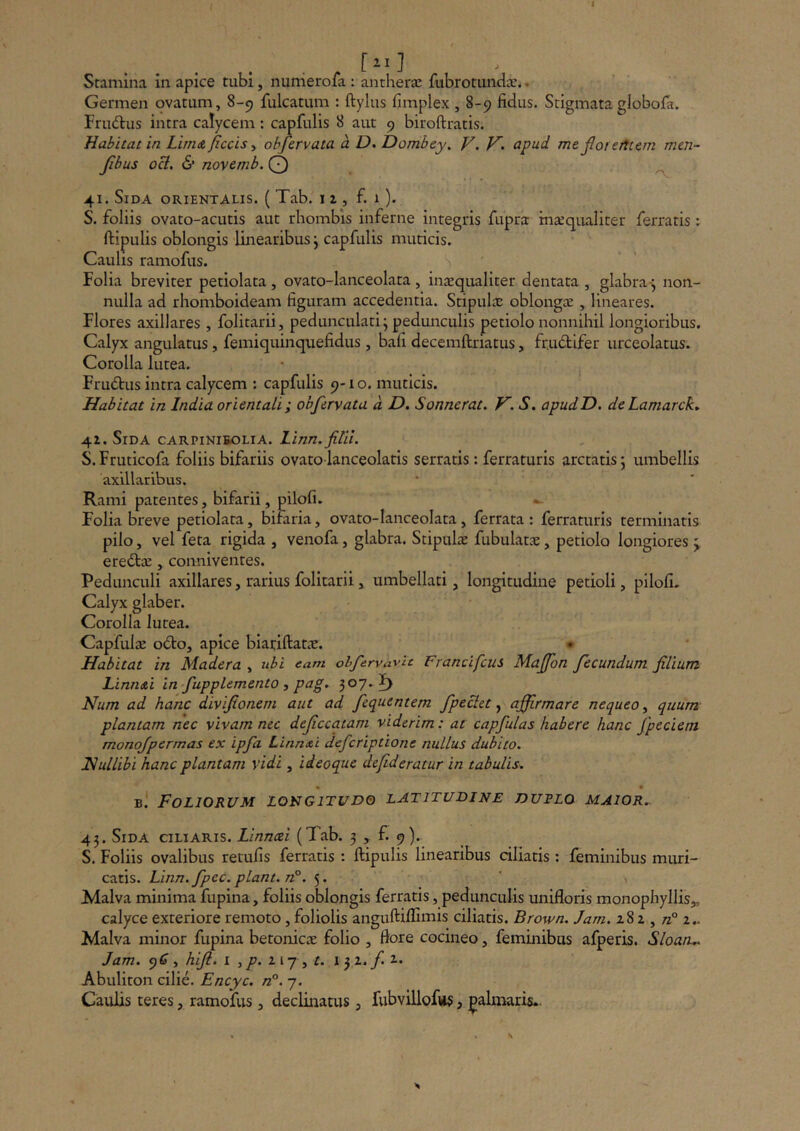 [ 21 ]
Stamina in apice tubi, numerosa : antheræ subrotundæ.
Germen ovatum, 8-9 sulcatum : stylus simplex, 8-9 fidus. Stigmata globosa.
Fructus intra calycem : capsulis 8 aut 9 birostratis.
Habitat in Limæ siccis, observata à D. Dombey. V. V. apud me florentem men-
sibus oct. & novemb. ⊙
41. SIDA ORIENTALIS. ( Tab. 12, f. 1 ).
S. foliis ovato-acutis aut rhombis inferne integris supra inæqualiter serratis :
stipulis oblongis linearibus; capsulis muticis.
Caulis ramosus.
Folia breviter petiolata, ovato-lanceolata, inæqualiter dentata, glabra; non-
nulla ad rhomboideam figuram accedentia. Stipulæ oblongæ, lineares.
Flores axillares, solitarii, pedunculati; pedunculis petiolo nonnihil longioribus.
Calyx angulatus, semiquinquefidus, basi decemstriatus, fructifer urceolatus.
Corolla lutea.
Fructus intra calycem : capsulis 9-10. muticis.
Habitat in India orientali; observata à D. Sonnerat. V. S. apud D. de Lamarck.
42. SIDA CARPINIFOLIA. Linn. filii.
S. Fruticosa foliis bifariis ovato-lanceolatis serratis : serraturis arctatis; umbellis
axillaribus.
Rami patentes, bifarii, pilosi.
Folia breve petiolata, bifaria, ovato-lanceolata, serrata : serraturis terminatis
pilo, vel seta rigida, venosa, glabra. Stipulæ subulatæ, petiolo longiores;
erectæ, conniventes.
Pedunculi axillares, rarius solitarii, umbellati, longitudine petioli, pilosi.
Calyx glaber.
Corolla lutea.
Capsulæ octo, apice biaristatæ.
Habitat in Madera, ubi eam observavit Franciscus Masson secundum filium
Linnæi in supplemento, pag. 307. ♄
Num ad hanc divisionem aut ad sequentem spectet, affirmare nequeo, quum
plantam nec vivam nec desiccatam viderim : at capsulas habere hanc speciem
monospermas ex ipsa Linnæi descriptione nullus dubito.
Nullibi hanc plantam vidi, ideoque desideratur in tabulis.
B. FOLIORUM LONGITUDO LATITUDINE DUPLO MAIOR.
43. SIDA CILIARIS. Linnæi ( Tab. 3, f. 9 ).
S. Foliis ovalibus retusis serratis : stipulis linearibus ciliatis : seminibus muri-
catis. Linn. spec. plant. n°. 5.
Malva minima supina, foliis oblongis serratis, pedunculis unifloris monophyllis,
calyce exteriore remoto, foliolis angustissimis ciliatis. Brown. Jam. 282, n° 2.
Malva minor supina betonicæ folio, flore cocineo, seminibus asperis. Sloan.
Jam. 96, hist. 1, p. 217, t. 132. f. 2.
Abuliton cilié. Encyc. n°. 7.
Caulis teres, ramosus, declinatus, subvillosus, palmaris.